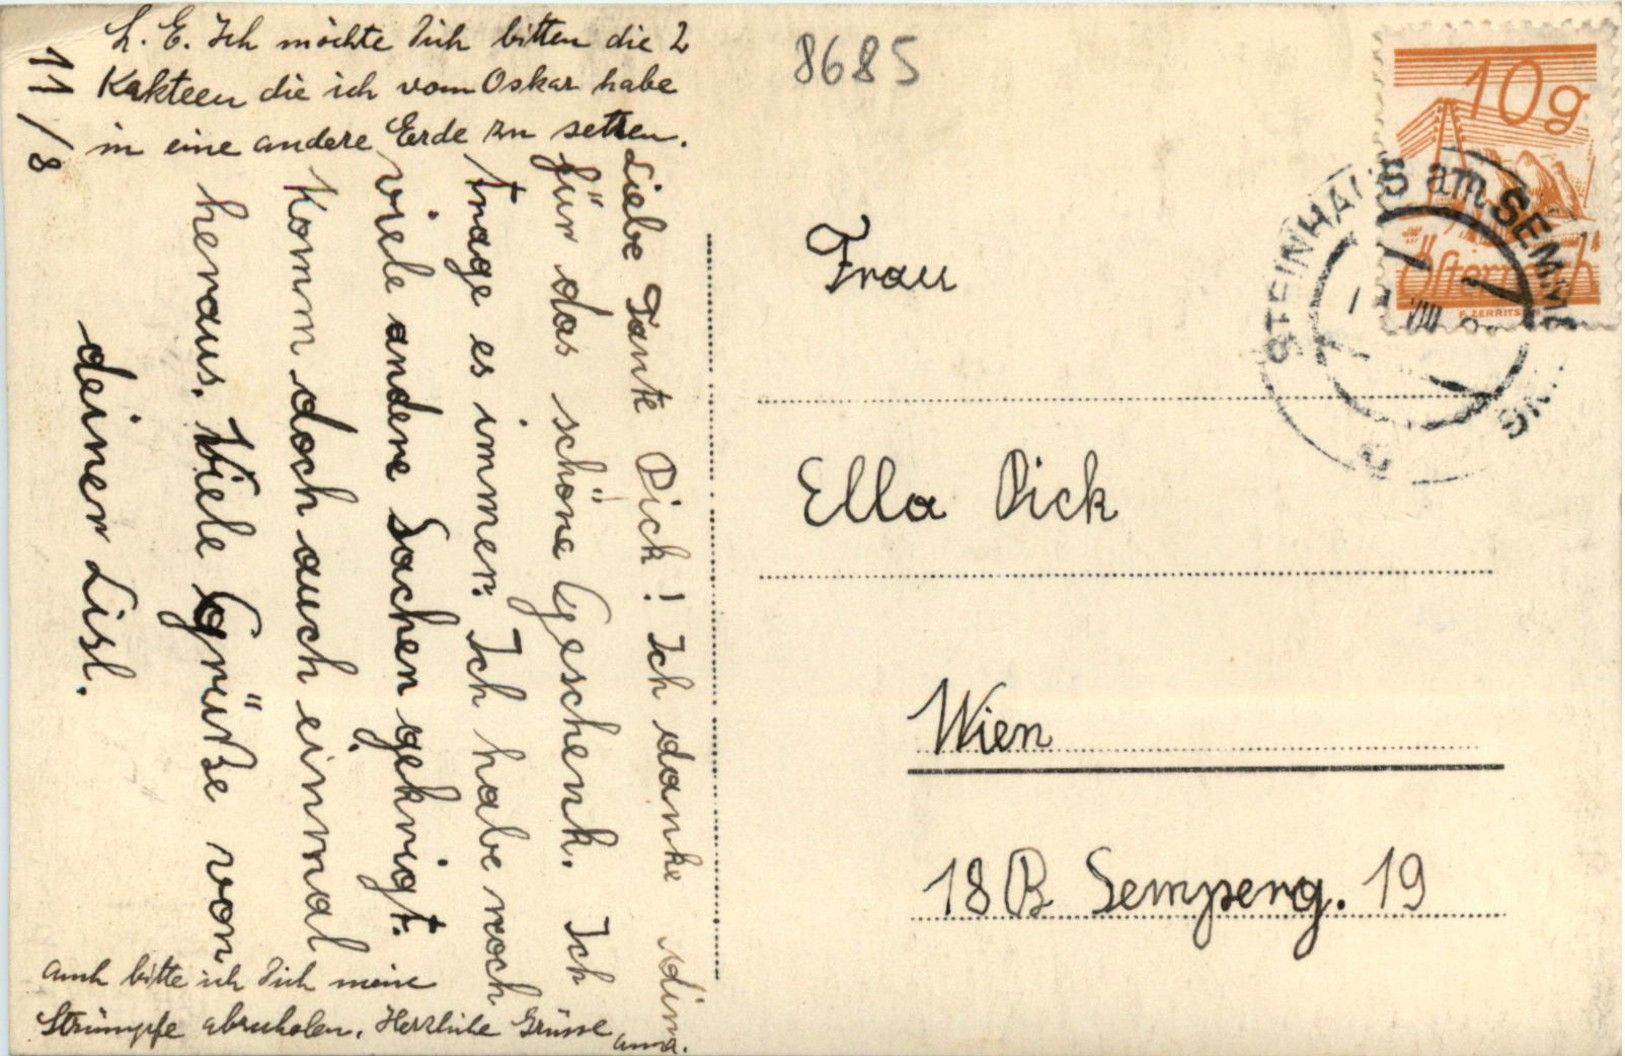 L. E. Ich möchte Dich bitten die 2
Kakteen die ich vom Oskar habe
in eine andere Erde zu setzen.
11/8
Liebe Tante Dick! Ich danke dir
für das schöne Geschenk. Ich
trage es immer. Ich habe noch
viele andere Sachen gekrigt.
Komm doch auch einmal
heraus. Viele Grüße von
deiner Lisl.
auch bitte ich Dich meine
Strümpfe abzuholen. Herzliche Grüsse
Anna.
8685
10g
Österreich
STEINHAUS am SEMMERING
VIII
Frau
Ella Dick
Wien
18 B Semperg. 19